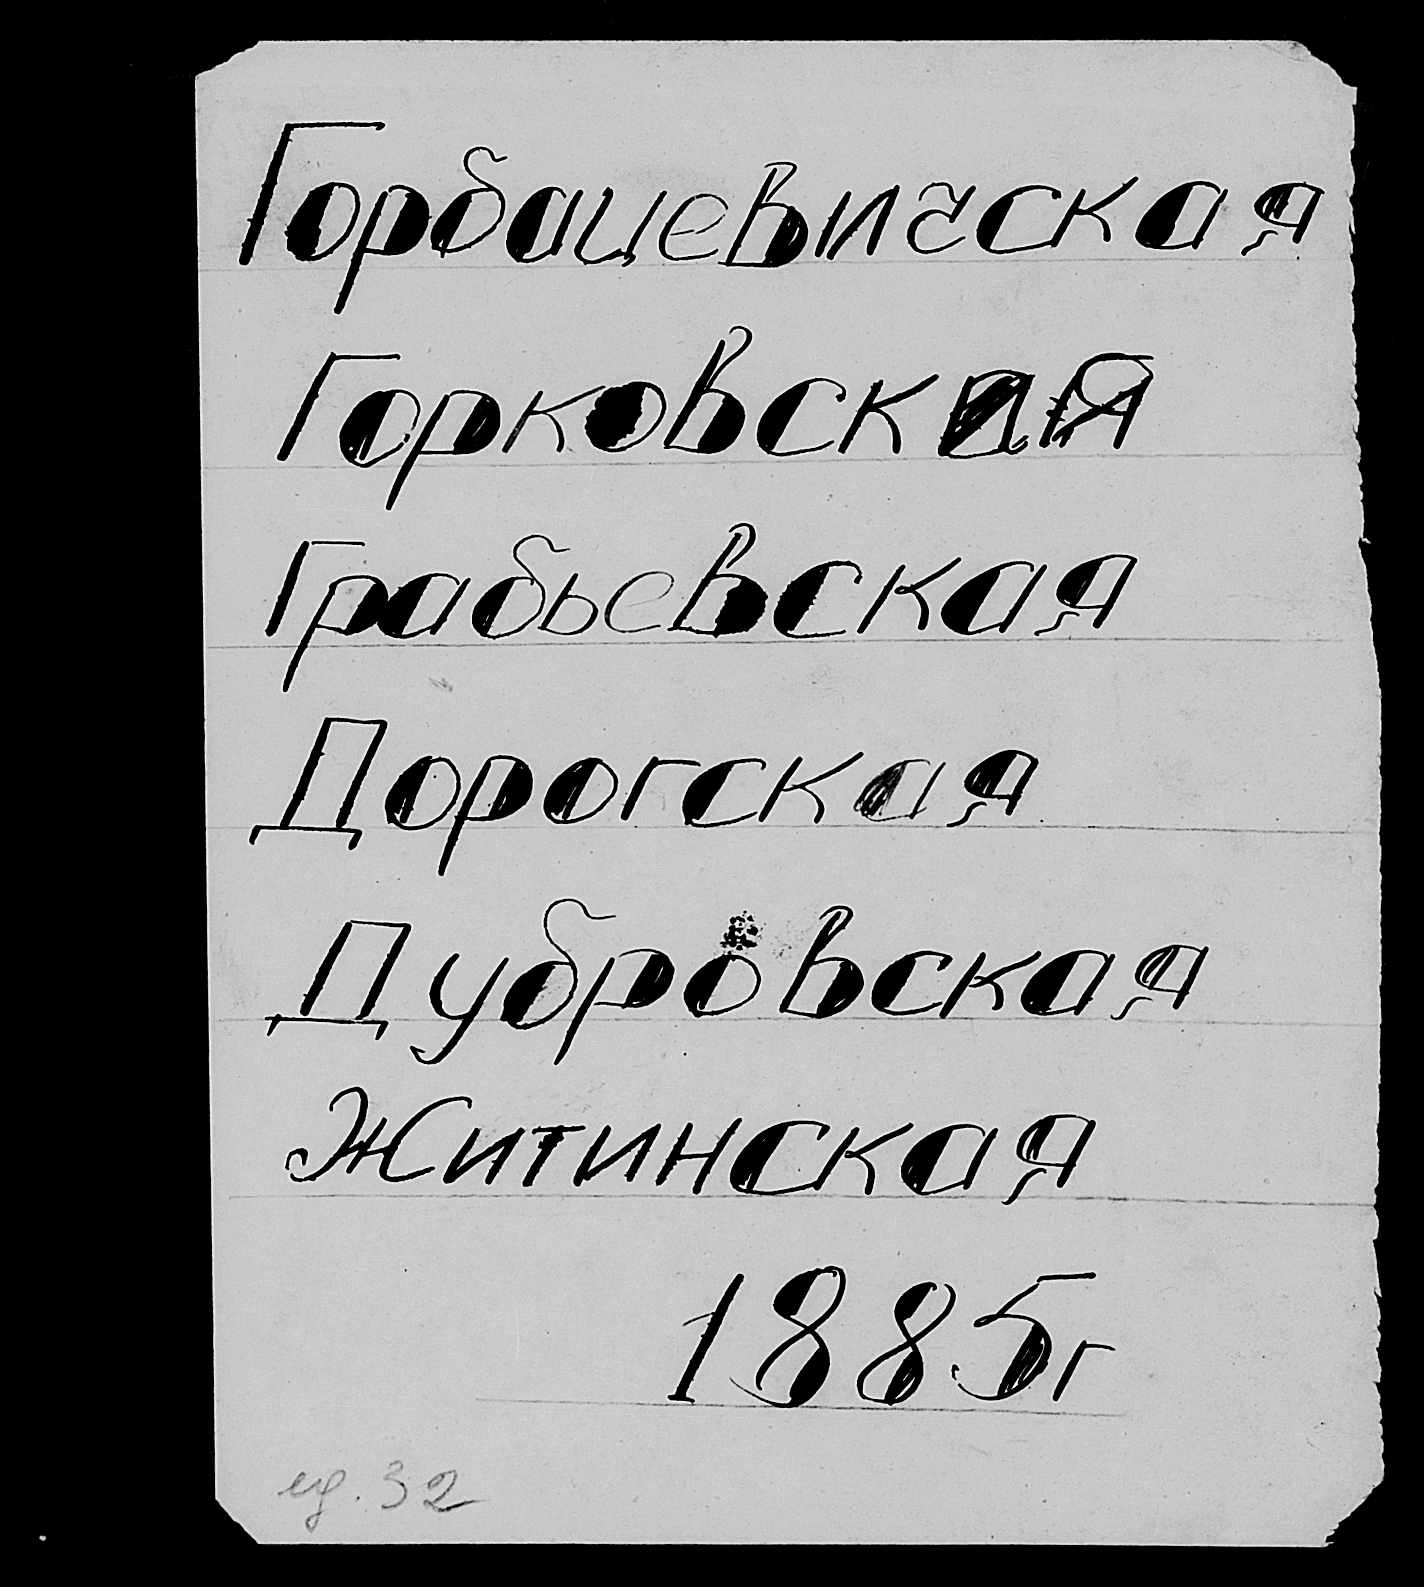 Горбацевичская
Горковская
Грабьевская
Дорогская
Дубровская
Житинская
1885г
ед. 32